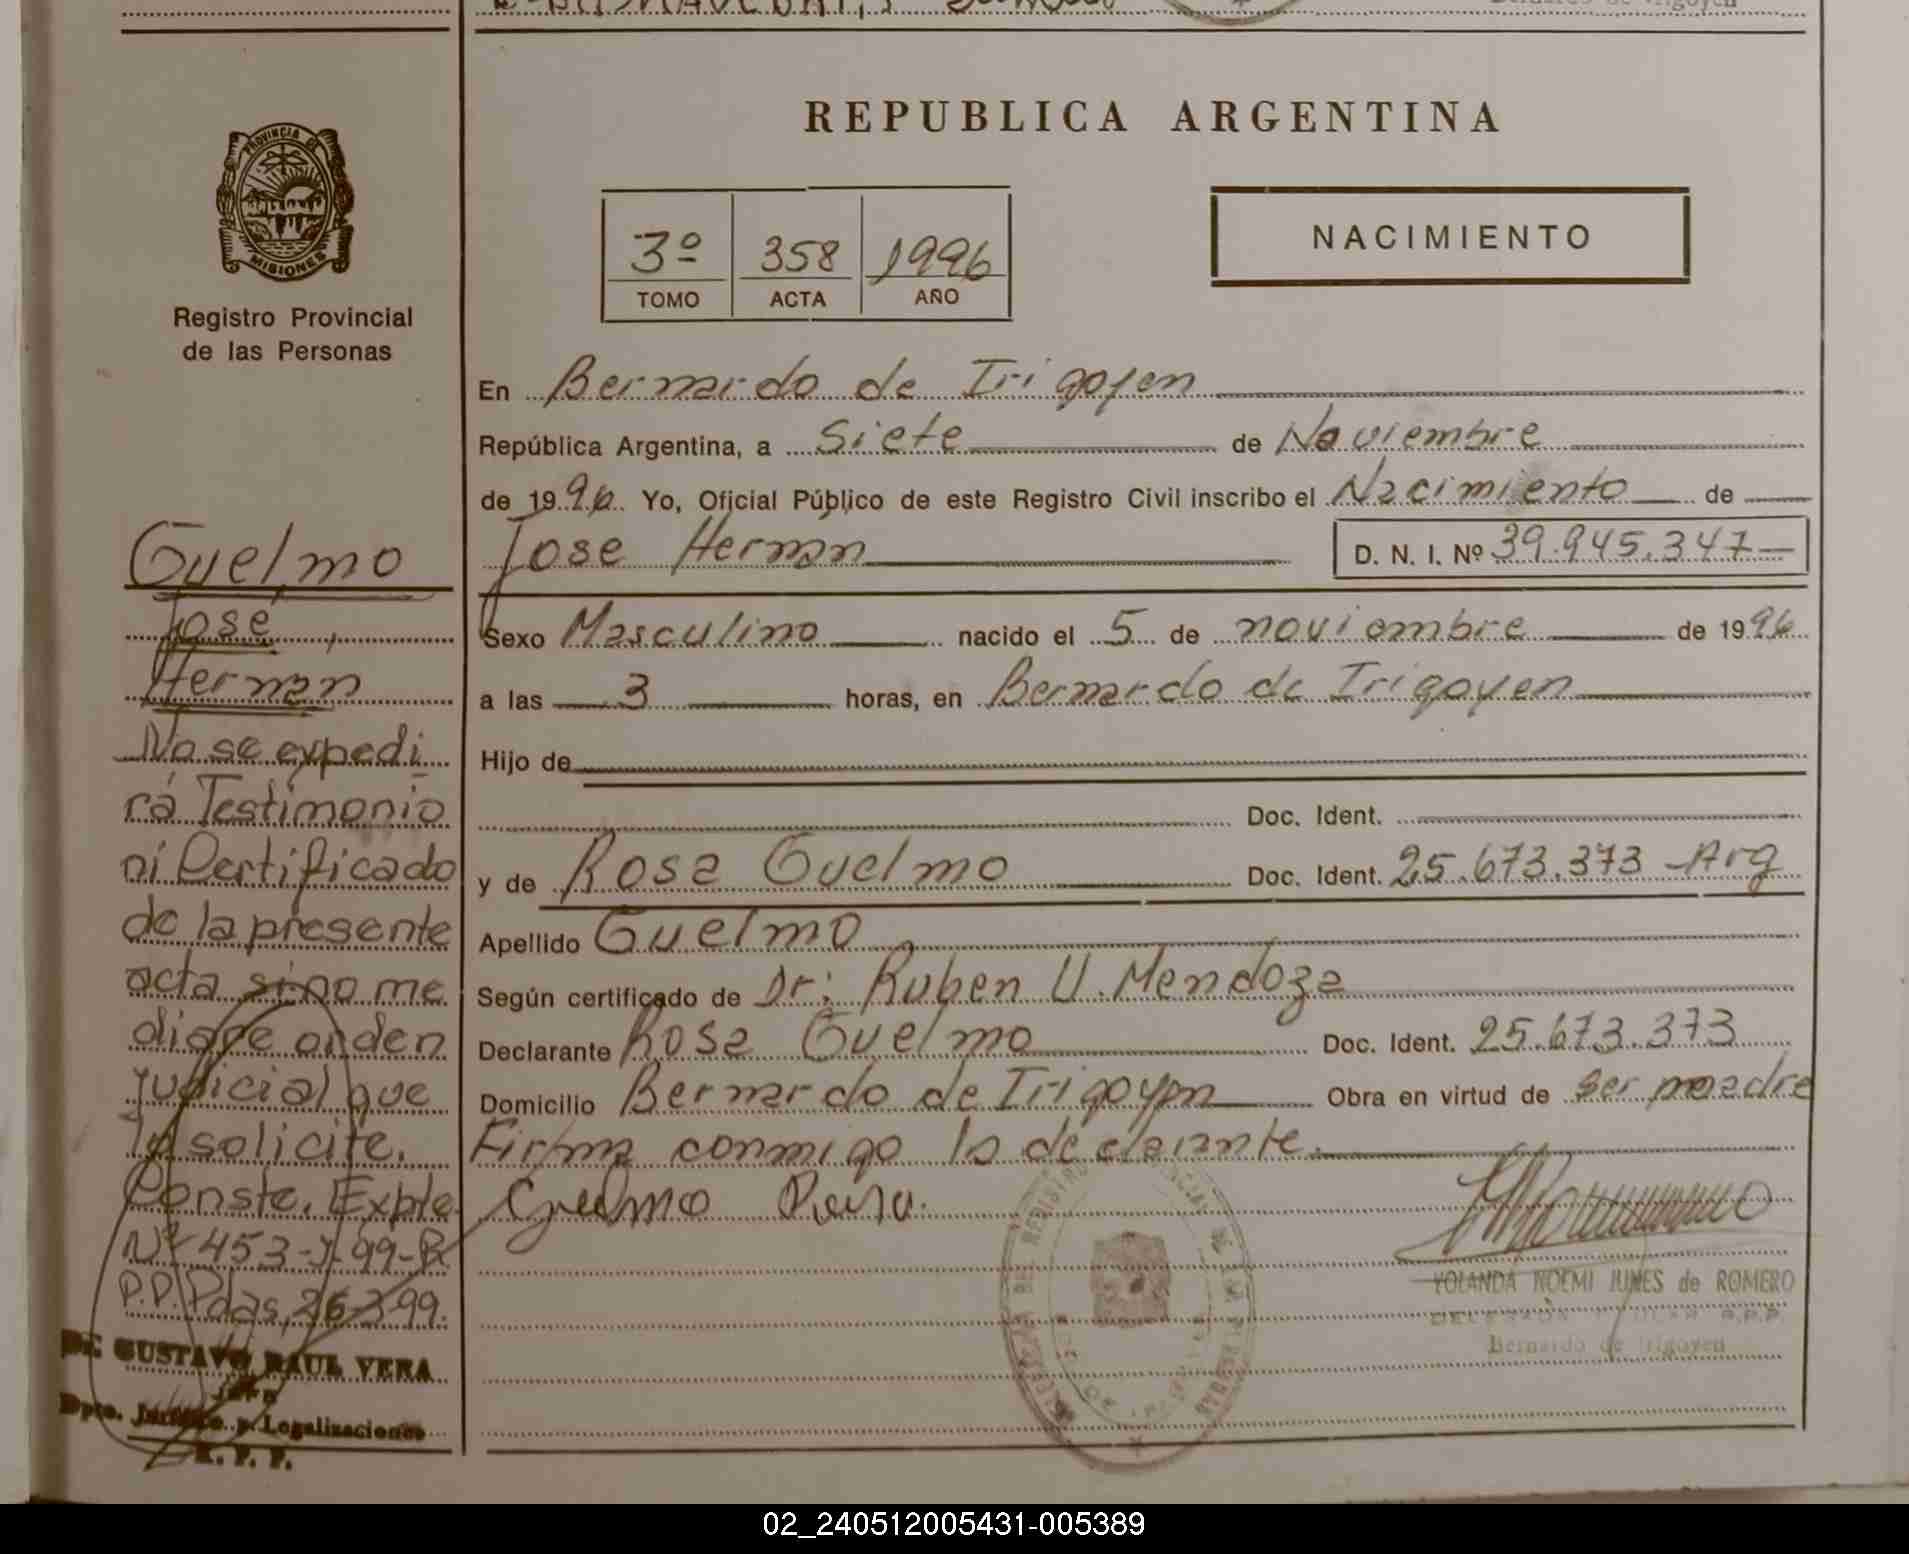 REPUBLICA ARGENTINA
PROVINCIA DE
MISIONES
Registro Provincial
de las Personas
3º 358 1996
TOMO ACTA AÑO
NACIMIENTO
En Bernardo de Irigoyen
República Argentina, a Siete de Noviembre
de 1996 Yo, Oficial Público de este Registro Civil inscribo el Nacimiento de
Jose Hernan D. N. I. Nº 39.945.347
Sexo Masculino nacido el 5 de noviembre de 1996
a las 3 horas, en Bernardo de Irigoyen
Hijo de
Doc. Ident.
y de Rosa Guelmo Doc. Ident. 25.673.373 - Arg
Apellido Guelmo
Según certificado de Dr: Ruben U. Mendoza
Declarante Rosa Guelmo Doc. Ident. 25.673.373
Domicilio Bernardo de Irigoyen Obra en virtud de ser madre
Firma conmigo la declarante.
Guelmo Rosa.
YOLANDA NOEMI JUNES de ROMERO
R.P.P.
Bernardo de Irigoyen
Guelmo
José
Hernan
No se expedi
rá Testimonio
ni Certificado
de la presente
acta si no me
diare orden
judicial que
lo solicite.
Conste. Expte
Nº 453-J-99-R
P.D. Pdas, 26-3-99.
Dr. GUSTAVO RAUL VERA
Jefe
Dpto. Jurídico y Legalizaciones
R. P. P.
02_240512005431-005389